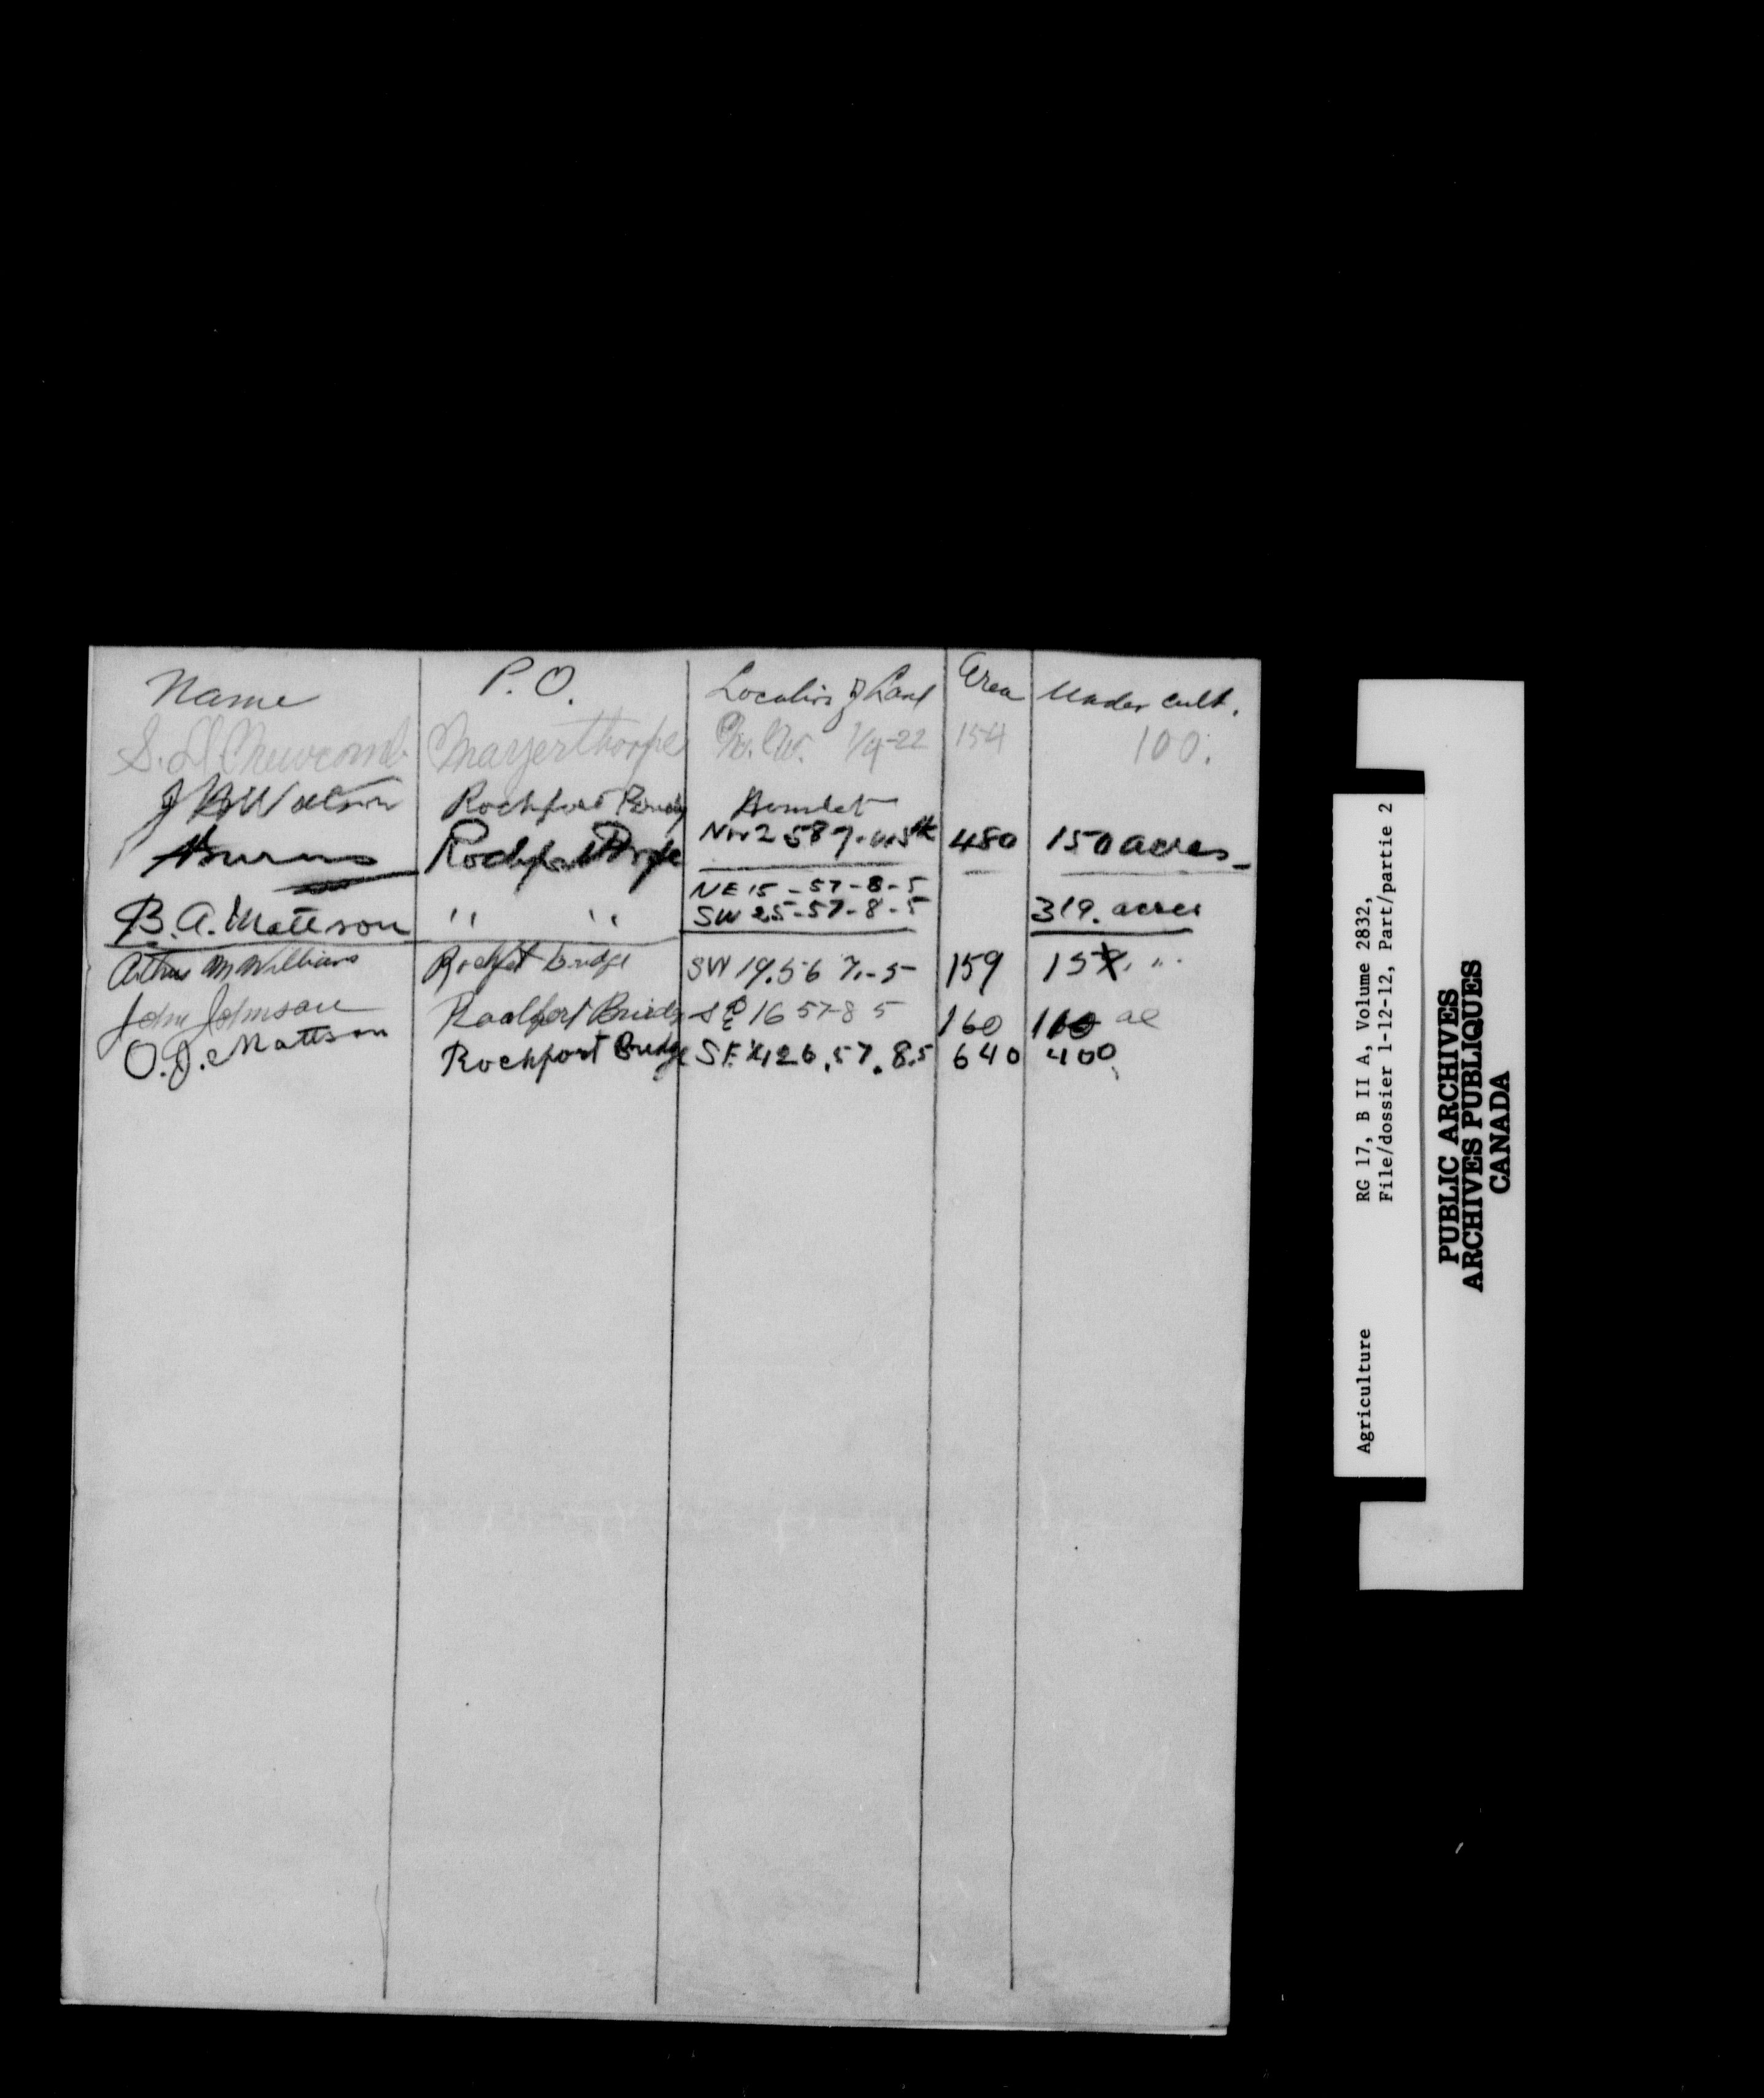 Name P.O. Location of Land Area Under cult.
S. D. Newcomb Mayerthorpe N.W. 1/4-22 154 100.
Watson Rochfort Bridge Hamlet
Burns Rochfort Bridge NW 2 58 9. W 5th 480 150 acres
NE 15-57-8-5
B. A. Mattson " " SW 25-57-8-5 319. acres
Arthur McWilliams Rochfort Bridge SW 19.56 7.-5- 159 " "
John Johnson Rochfort Bridge SE 16 57-8 5 160 110 ac
O. J. Mattson Rochfort Bridge SE 1/4 26.57.8.5 640 400
Agriculture RG 17, B II A, Volume 2832,
File/dossier 1-12-12, Part/partie 2
PUBLIC ARCHIVES
ARCHIVES PUBLIQUES
CANADA